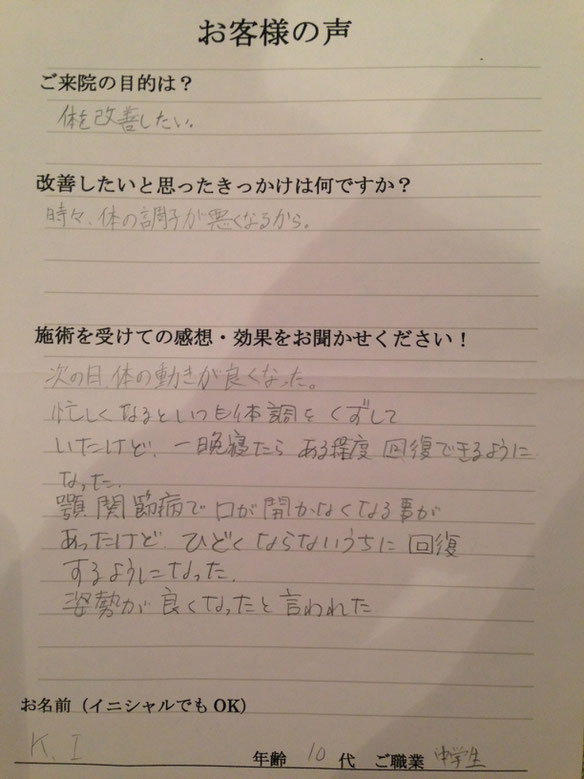 お客様の声
ご来院の目的は？
体を改善したい。
改善したいと思ったきっかけは何ですか？
時々、体の調子が悪くなるから。
施術を受けての感想・効果をお聞かせください！
次の日、体の動きが良くなった。
忙しくなるといつも体調をくずして
いたけど、一晩寝たらある程度回復できるように
なった。
顎関節病で口が開かなくなる事が
あったけど ひどくならないうちに回復
するようになった。
姿勢が良くなったと言われた
お名前（イニシャルでもOK）
K. I 年齢 10 代 ご職業 中学生